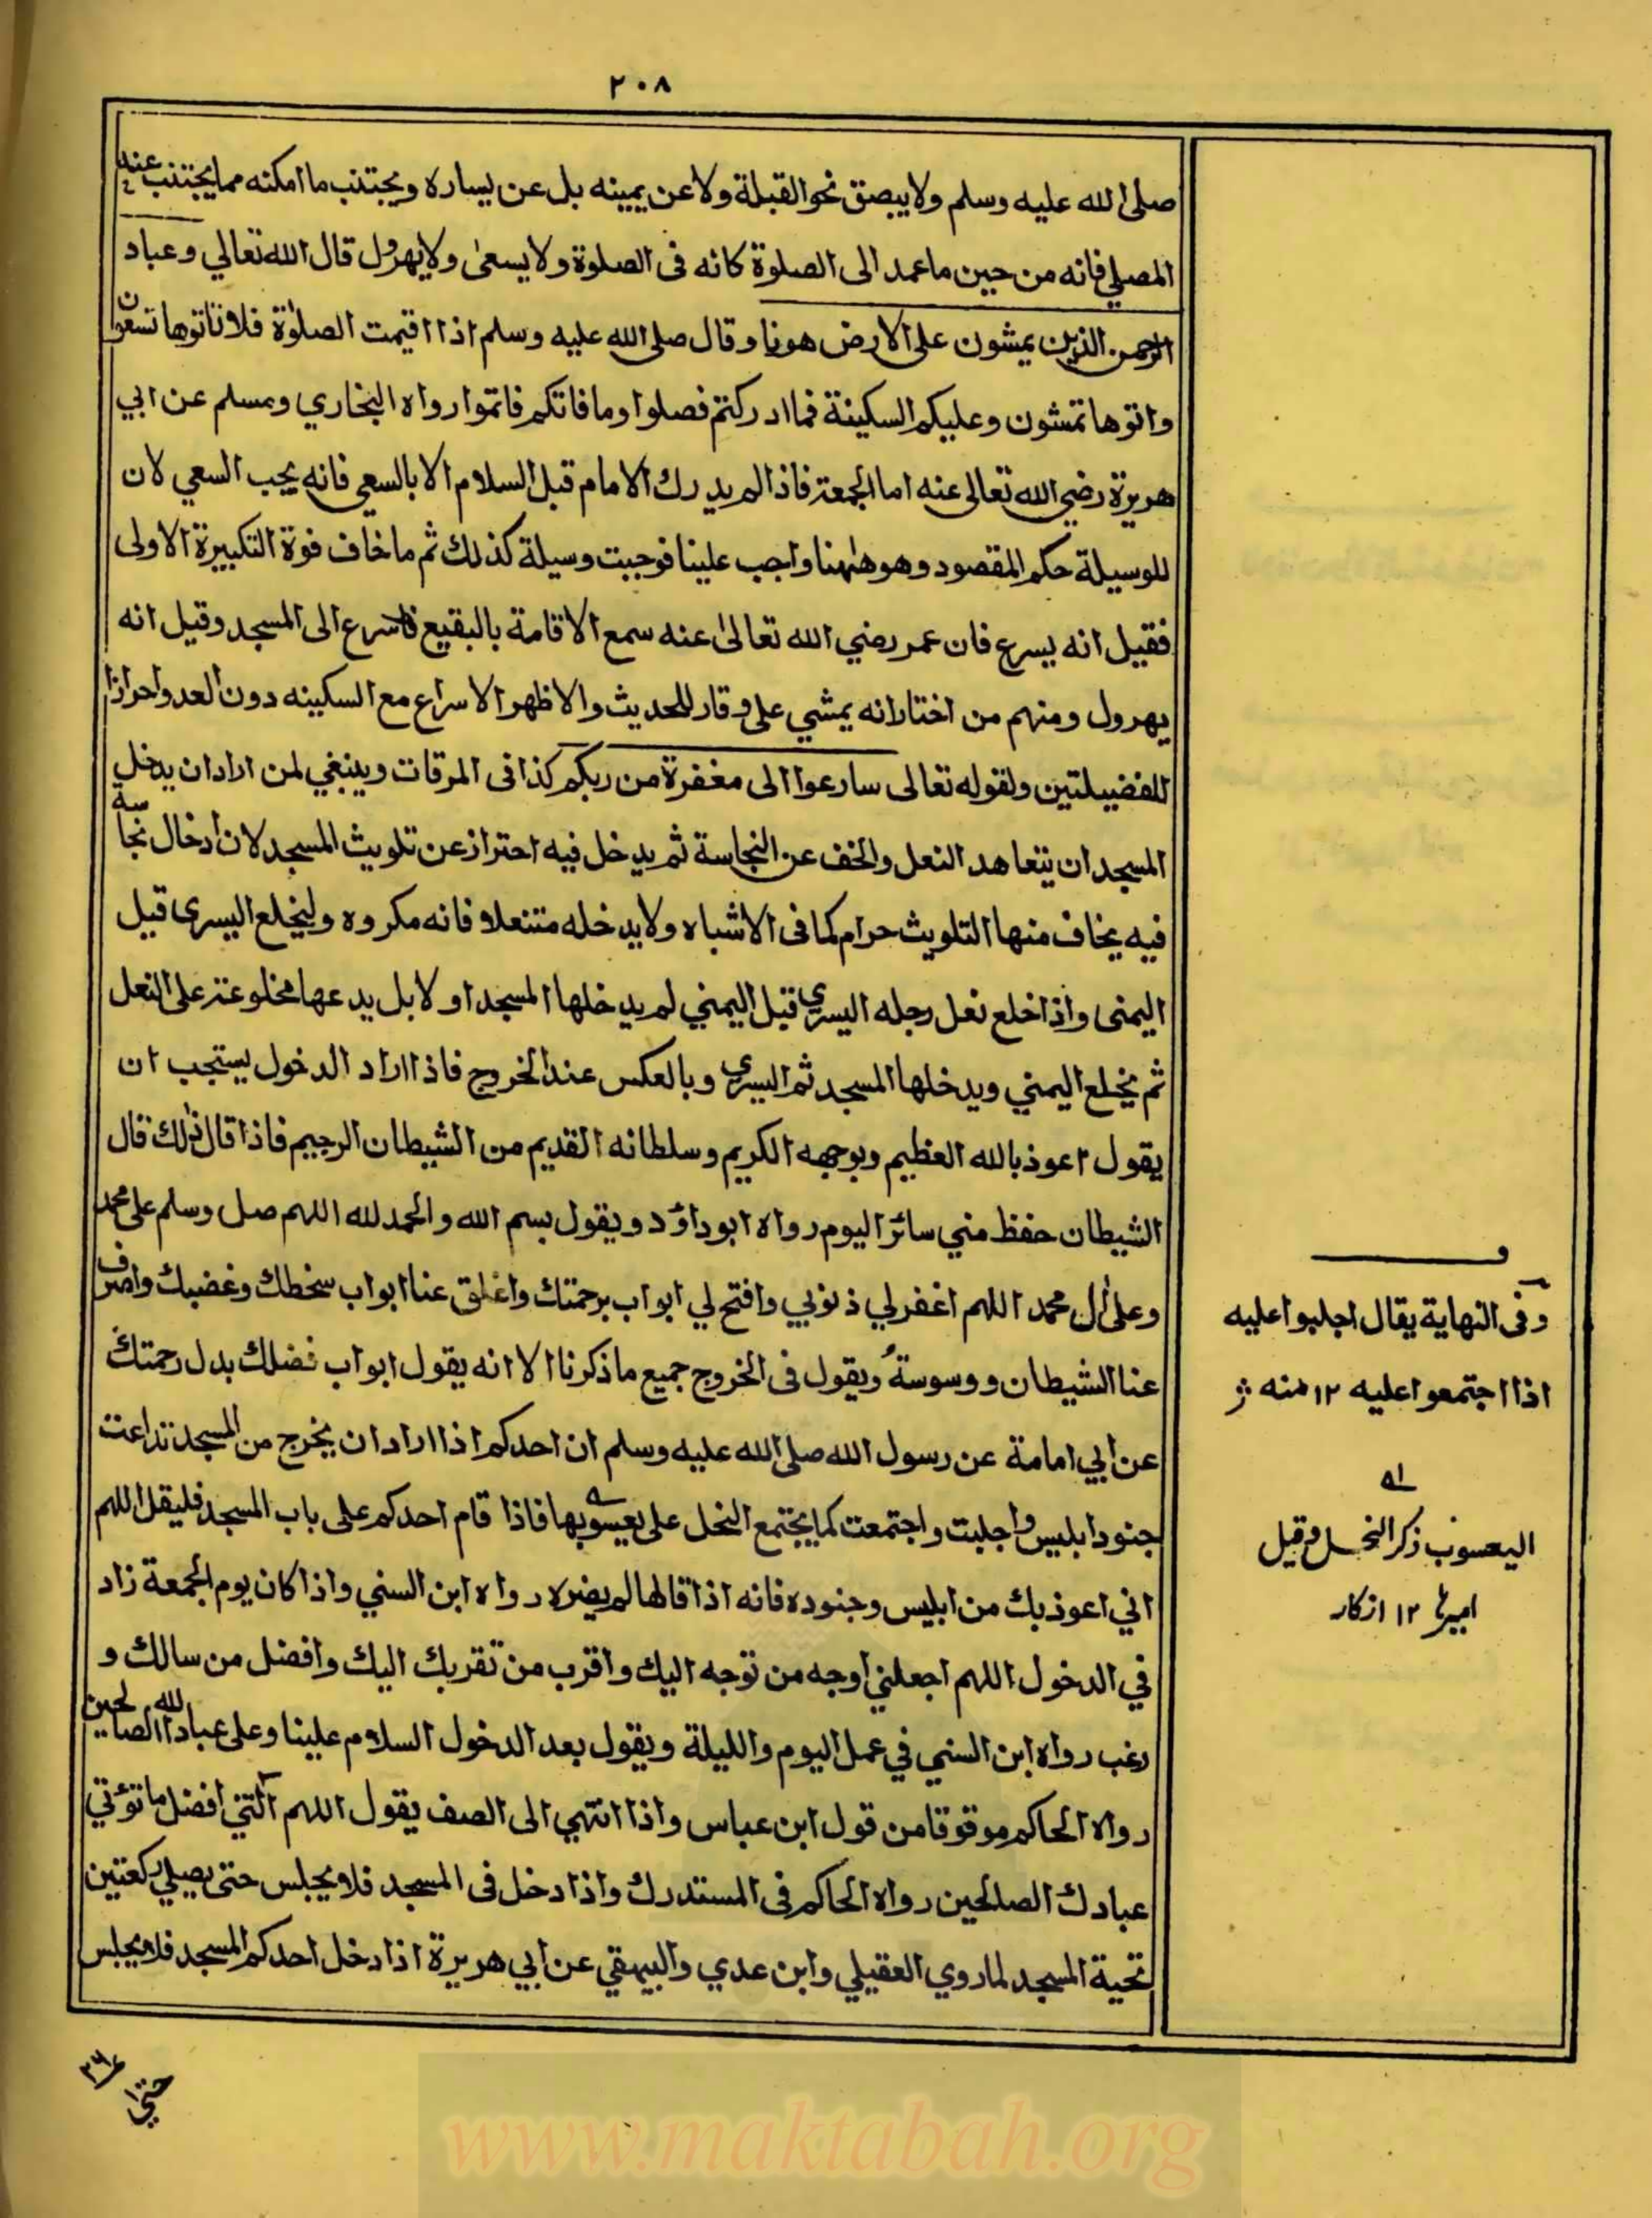 ٢٠٨
صلى الله عليه وسلم ولا يبصق نحو القبلة ولا عن يمينه بل عن يساره ويجتنب ما امكنه مما يجتنب عنه
المصلي فانه من حين ما عمد الى الصلوة كانه فى الصلوة ولا يسعى ولا يهرول قال الله تعالي وعباد
الرحمن الذين يمشون على الارض هونا وقال صلى الله عليه وسلم اذا اقيمت الصلوة فلا تاتوها تسعون
واتوها تمشون وعليكم السكينة فما ادركتم فصلوا وما فاتكم فاتموا رواه البخاري ومسلم عن ابي
هريرة رضي الله تعالى عنه اما الجمعة فاذا لم يدرك الامام قبل السلام الا بالسعي فانه يجب السعي لان
للوسيلة حكم المقصود وهو ههنا واجب علينا فوجبت وسيلة كذلك ثم ما خاف فوة التكبيرة الاولى
فقيل انه يسرع فان عمر رضي الله تعالى عنه سمع الاقامة بالبقيع فاسرع الى المسجد وقيل انه
يهرول ومنهم من اختار انه يمشي على وقار للحديث والاظهر الاسراع مع السكينه دون العدو احرازا
للفضيلتين ولقوله تعالى سارعوا الى مغفرة من ربكم كذا فى المرقات وينبغي لمن اراد ان يدخل
المسجد ان يتعاهد النعل والخف عن النجاسة ثم يدخل فيه احتراز عن تلويث المسجد لان ادخال نجاسة
فيه يخاف منها التلويث حرام كما فى الاشباه ولا يدخله متنعلا فانه مكروه وليخلع اليسرى قبل
اليمنى واذا خلع نعل رجله اليسري قبل اليمني لم يدخلها المسجد اولا بل يدعها مخلوعة على النعل
ثم يخلع اليمني ويدخلها المسجد ثم اليسري وبالعكس عند الخروج فاذا اراد الدخول يستحب ان
يقول اعوذ بالله العظيم وبوجهه الكريم وسلطانه القديم من الشيطان الرجيم فاذا قال ذلك قال
الشيطان حفظ مني سائر اليوم رواه ابو داؤد ويقول بسم الله والحمد لله اللهم صل وسلم على محمد
وعلى ال محمد اللهم اغفر لي ذنوبي وافتح لي ابواب برحمتك واغلق عنا ابواب سخطك وغضبك واصرف
عنا الشيطان ووسوسة ويقول فى الخروج جميع ما ذكرنا الا انه يقول ابواب فضلك بدل رحمتك
عن ابي امامة عن رسول الله صلى الله عليه وسلم ان احدكم اذا اراد ان يخرج من المسجد تداعت
جنود ابليس واجلبت واجتمعت كما يجتمع النحل على يعسوبها فاذا قام احدكم على باب المسجد فليقل اللهم
اني اعوذ بك من ابليس وجنوده فانه اذا قالها لم يضره رواه ابن السني واذا كان يوم الجمعة زاد
في الدخول اللهم اجعلني اوجه من توجه اليك واقرب من تقربك اليك وافضل من سالك و
رغب رواه ابن السني في عمل اليوم والليلة ويقول بعد الدخول السلام علينا وعلى عباد الله الصالحين
رواه الحاكم موقوفا من قول ابن عباس واذا انتهي الى الصف يقول اللهم اتني افضل ما تؤتي
عبادك الصالحين رواه الحاكم فى المستدرك واذا دخل فى المسجد فلا يجلس حتى يصلي ركعتين
تحية المسجد لما روي العقيلي وابن عدي والبيهقي عن ابي هريرة اذا دخل احدكم المسجد فلا يجلس
وفى النهاية يقال اجلبوا عليه
اذا اجتمعوا عليه ١٢ منه
اليعسوب ذكر النحل وقيل
اميرها ١٢ اذكار
حتى
www.maktabah.org